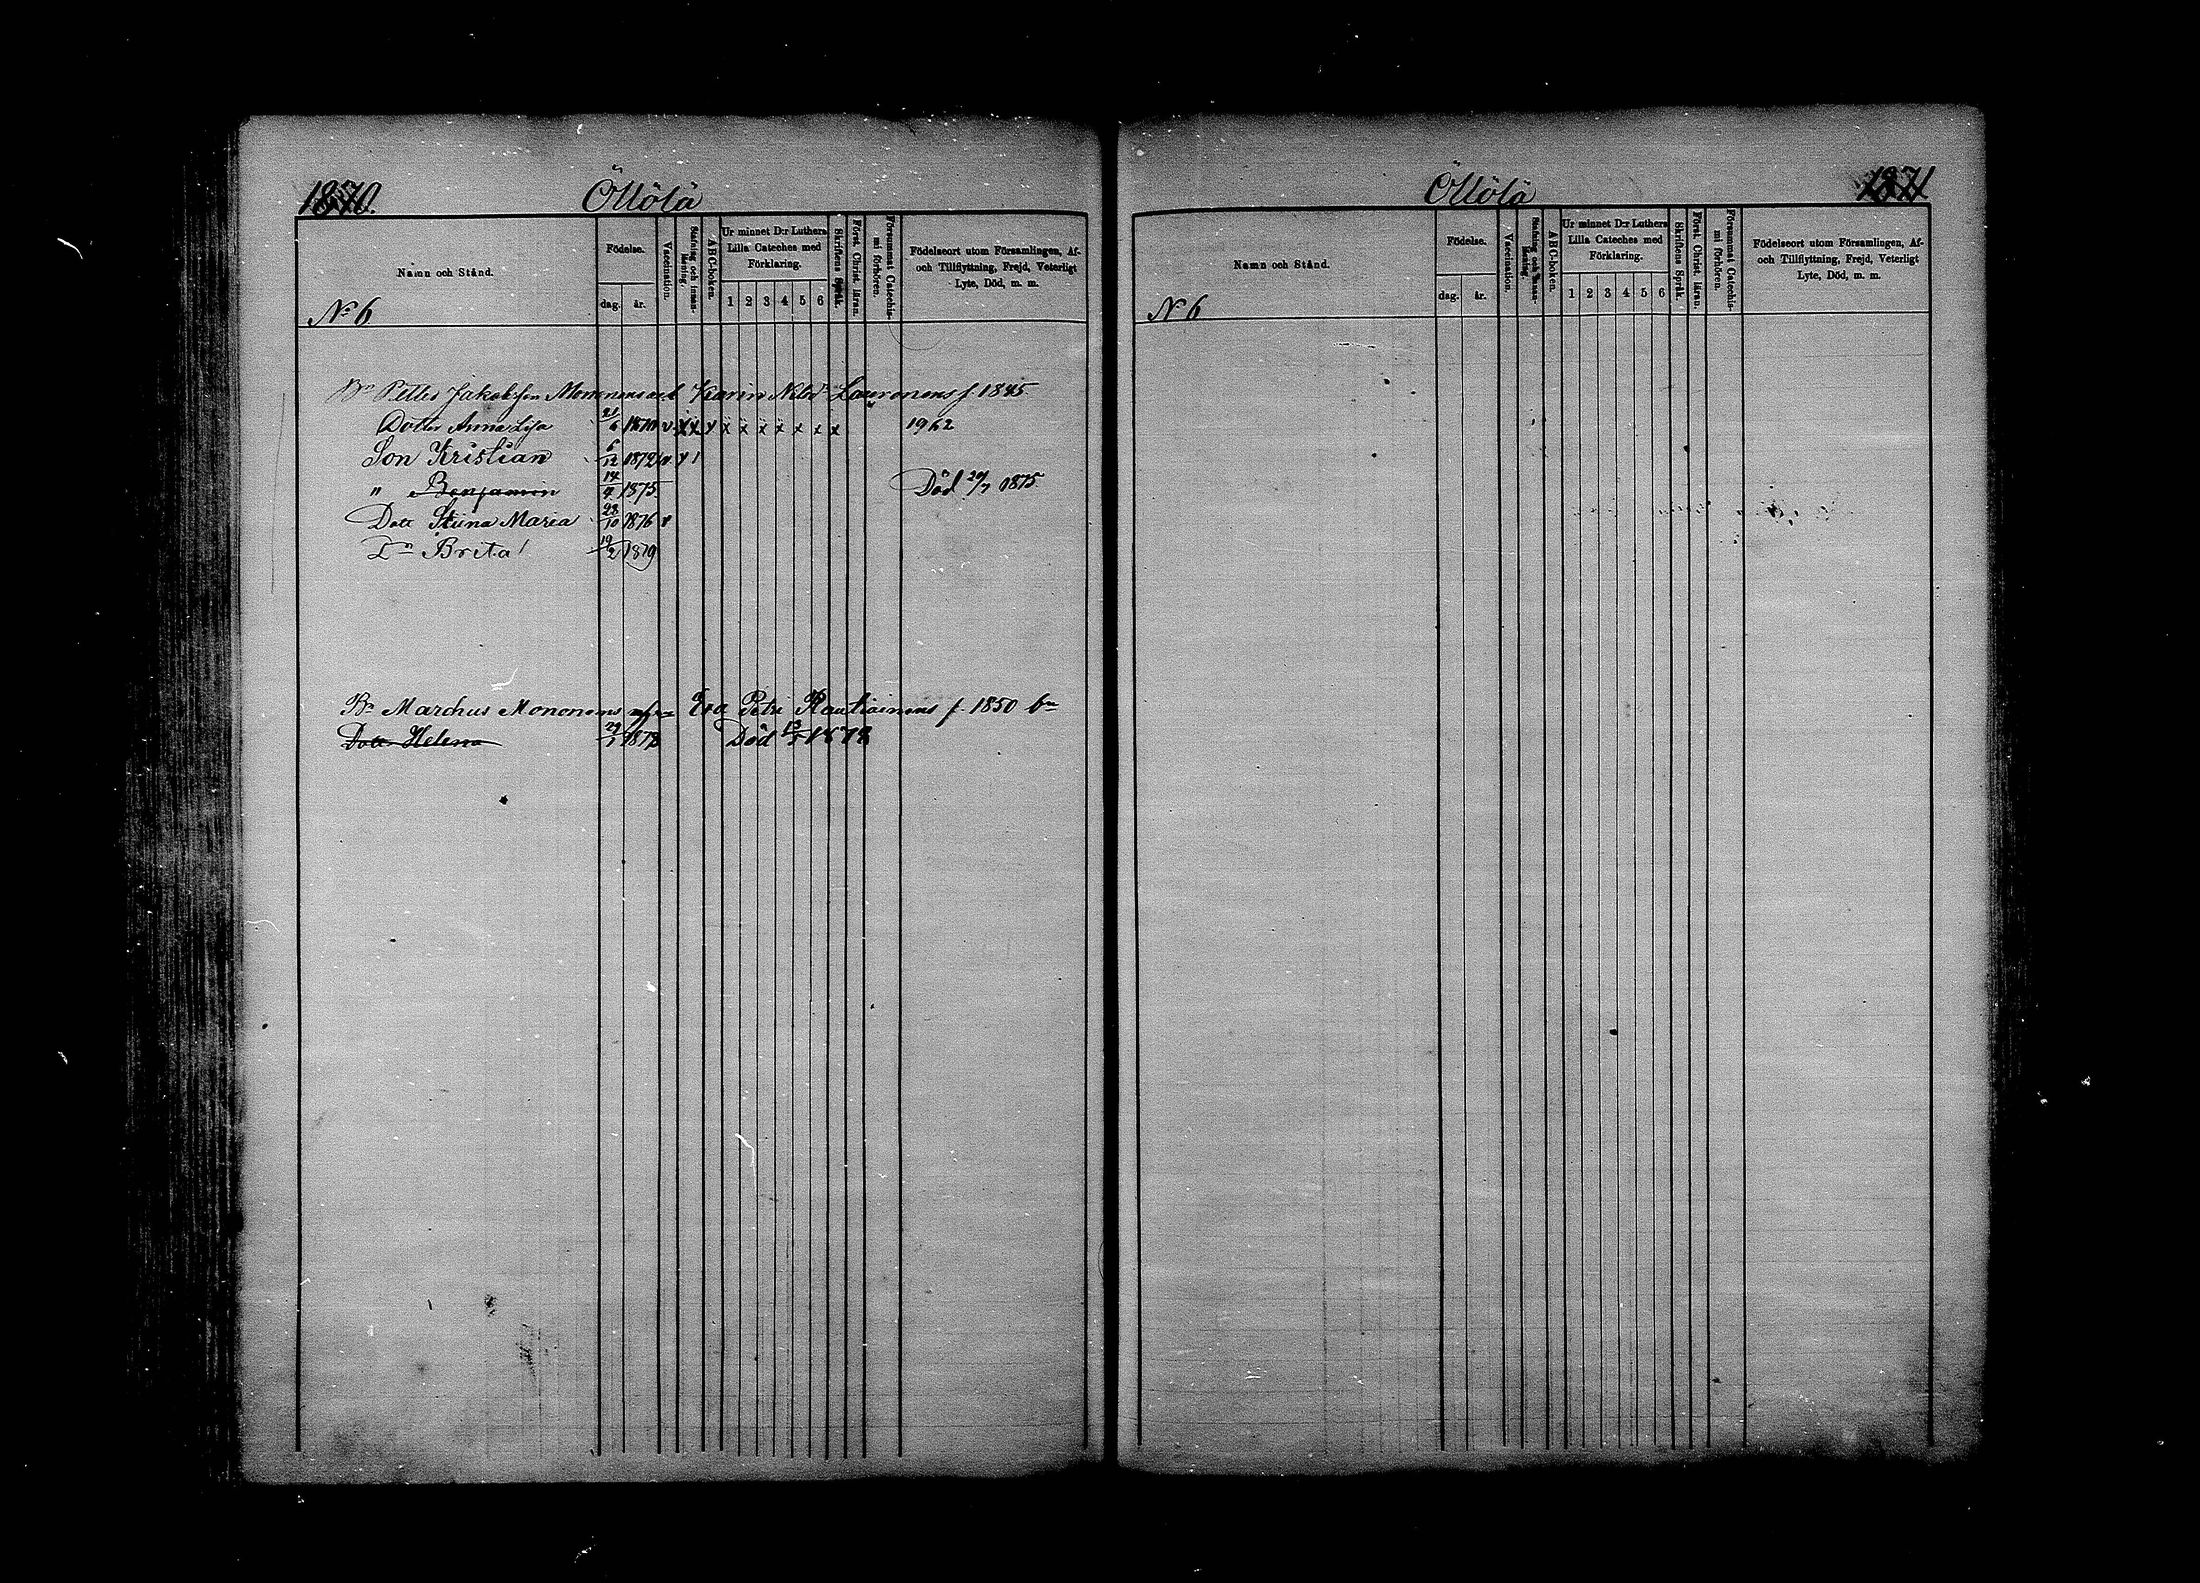 1870. Öllölä
Namn och Stånd.
Födelse.
dag. år.
Vaccination.
Stafning och innanläsning.
ABC-boken.
Ur minnet D:r Luthers
Lilla Cateches med
Förklaring.
1 2 3 4 5 6
Skriftens Språk.
Först. Christ. läran.
Försummat Catechismi förhören.
Födelseort utom Församlingen, Af-
och Tillflyttning, Frejd, Veterligt
Lyte, Död, m. m.
No 6
Bn Petter Jakobsson Mononens och Karin Lauronens f. 1845
Dotter Anna Lisa 21/6 1870 v x x x x x x x x x x 1962
Son Kristian 6/12 1872 v
" Benjamin 14/4 1875 Död 20/7 1875
Dott Stina Maria 28/10 1876 v
Dn Brita 19/2 1879
Bn Marchus Mononens Eva Petri Rautiainens f. 1850 bn
Dott Helena 1878 Död 1878
Öllölä 1871
Namn och Stånd.
Födelse.
dag. år.
Vaccination.
Stafning och innanläsning.
ABC-boken.
Ur minnet D:r Luthers
Lilla Cateches med
Förklaring.
1 2 3 4 5 6
Skriftens Språk.
Först. Christ. läran.
Försummat Catechismi förhören.
Födelseort utom Församlingen, Af-
och Tillflyttning, Frejd, Veterligt
Lyte, Död, m. m.
N 6